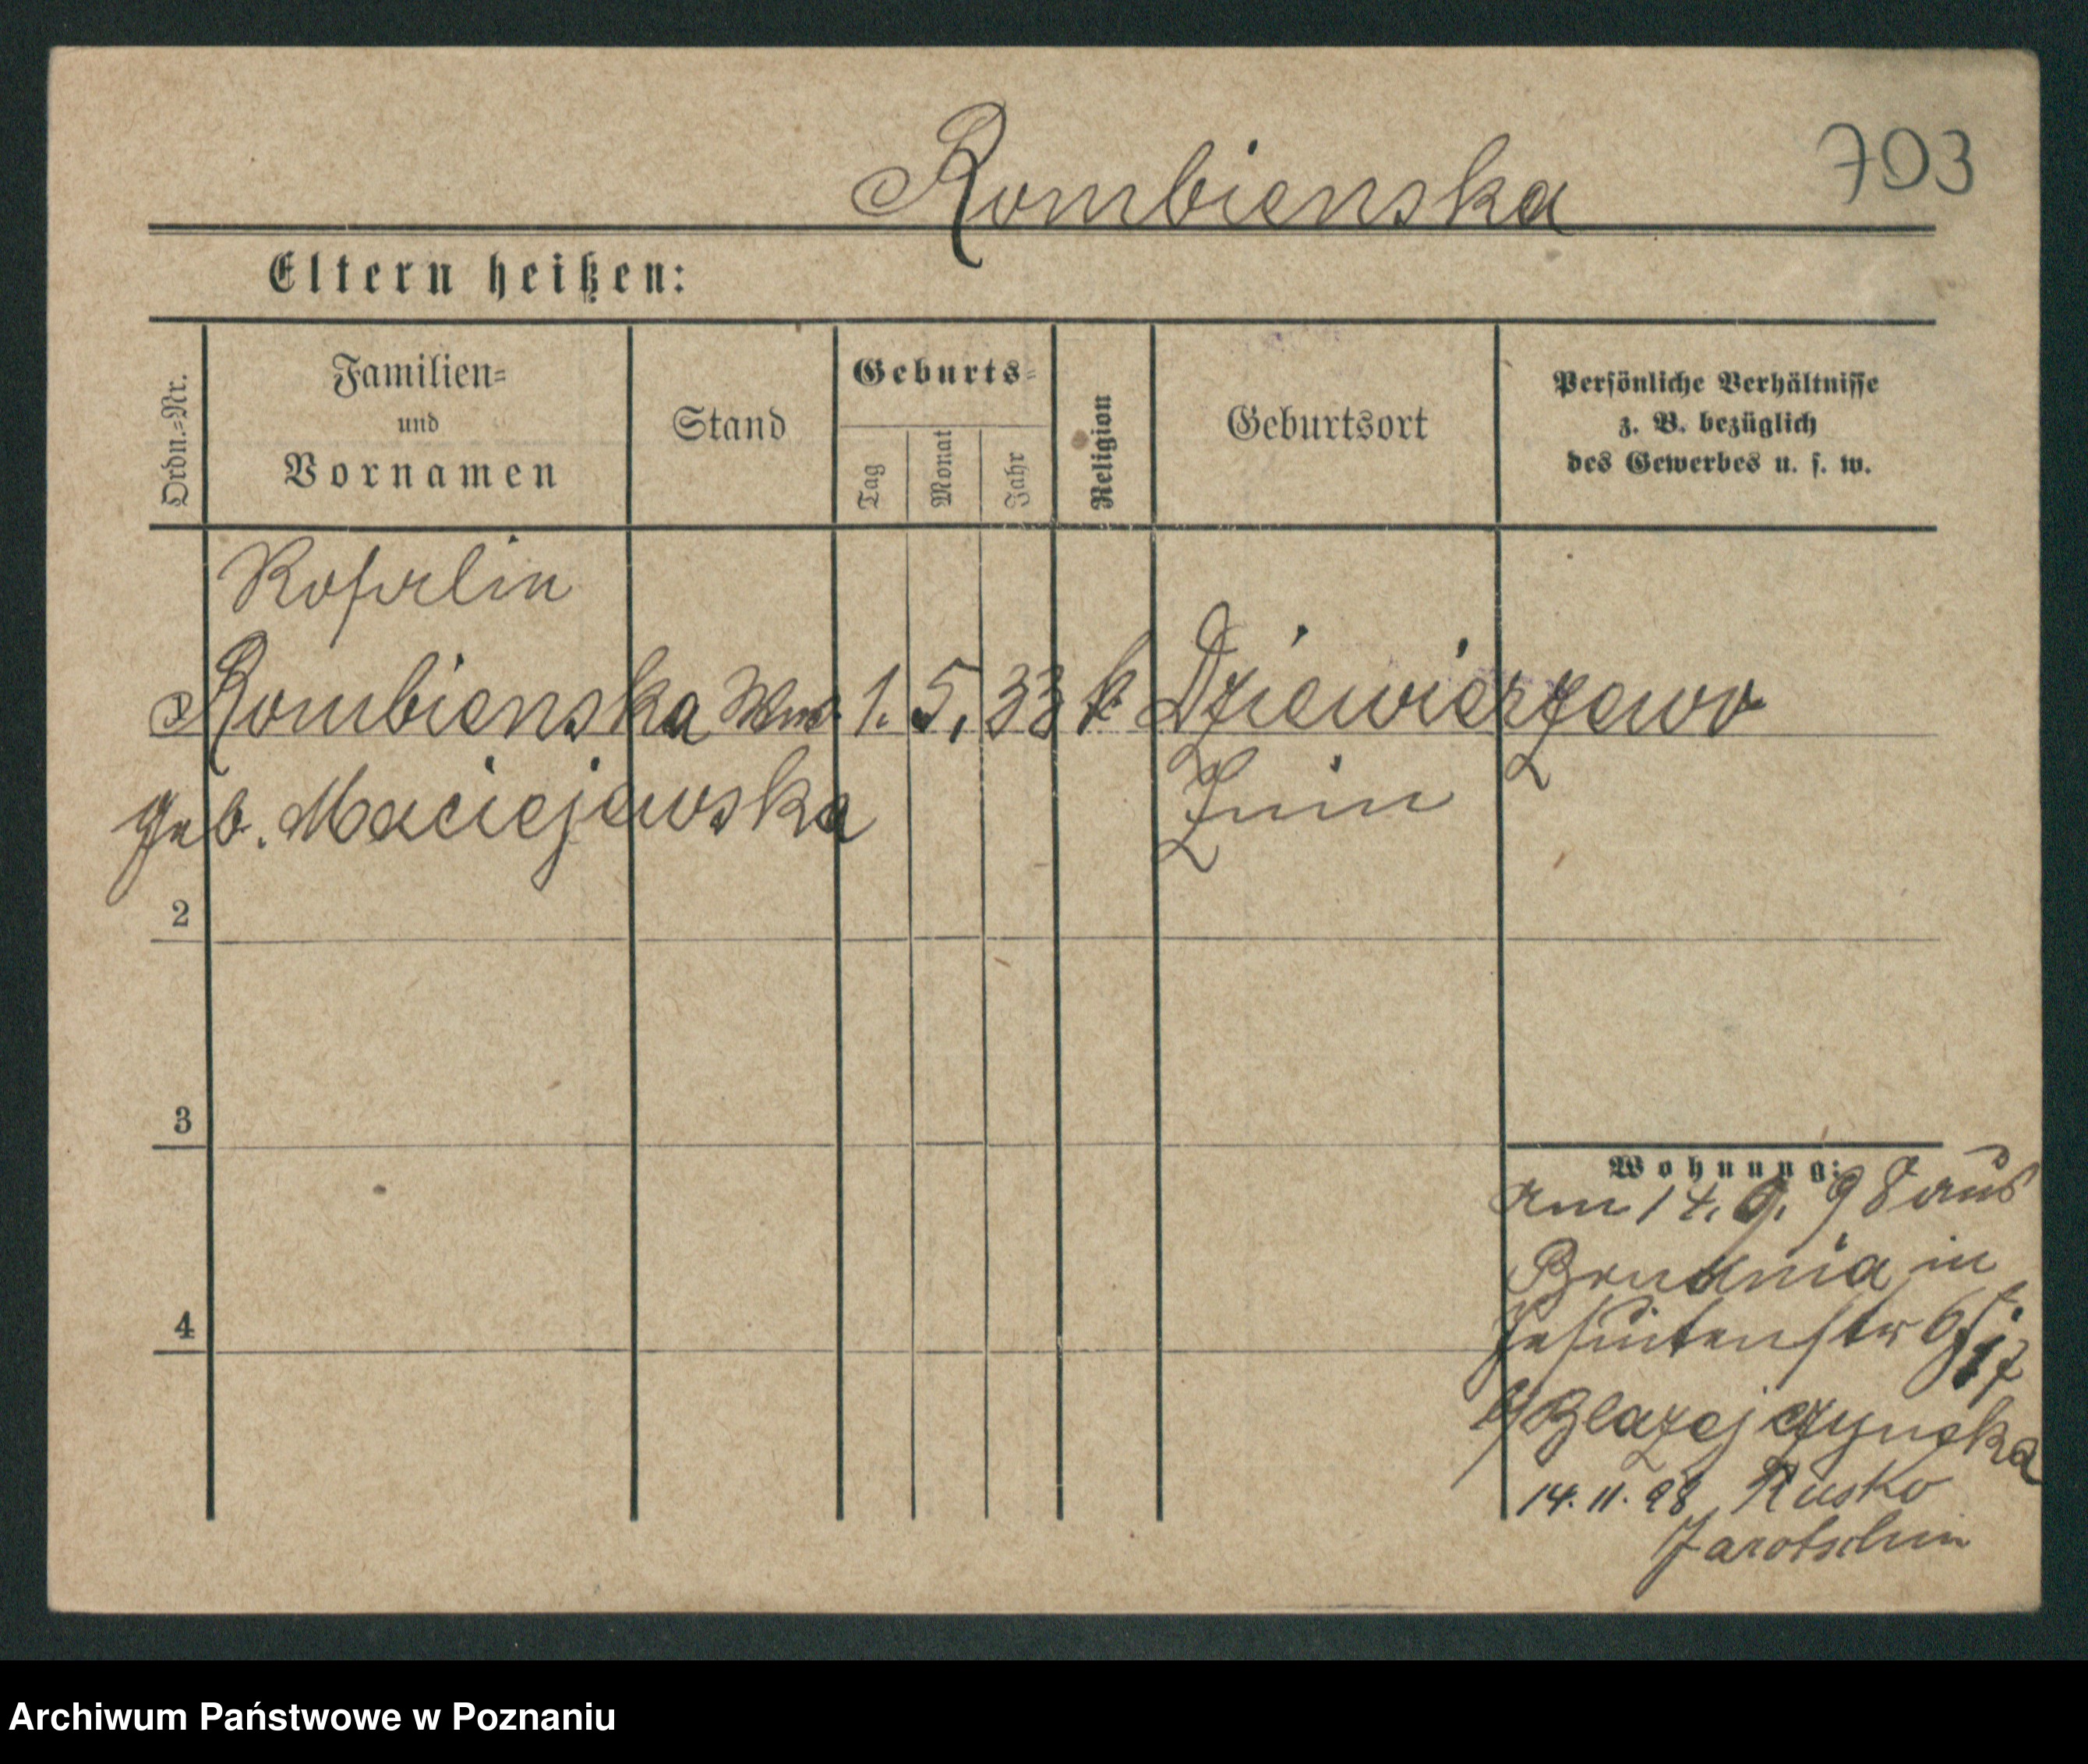 703
Rombienska
Eltern heißen:
Ordn.-Nr.
Familien-
und
Vornamen
Stand
Geburts-
Tag
Monat
Jahr
Religion
Geburtsort
Persönliche Verhältnisse
z. B. bezüglich
des Gewerbes u. s. w.
Rosalin
Rombienska Wwe. 1. 5. 33 k. Dziewierzewo
geb. Maciejewska Znin
2
3
4
Wohnung:
am 14. 9. 98 aus
Brudnia in
Jesuitenstr
Blazejczynska
14. 11. 98 Rusko
Jarotschin
Archiwum Państwowe w Poznaniu